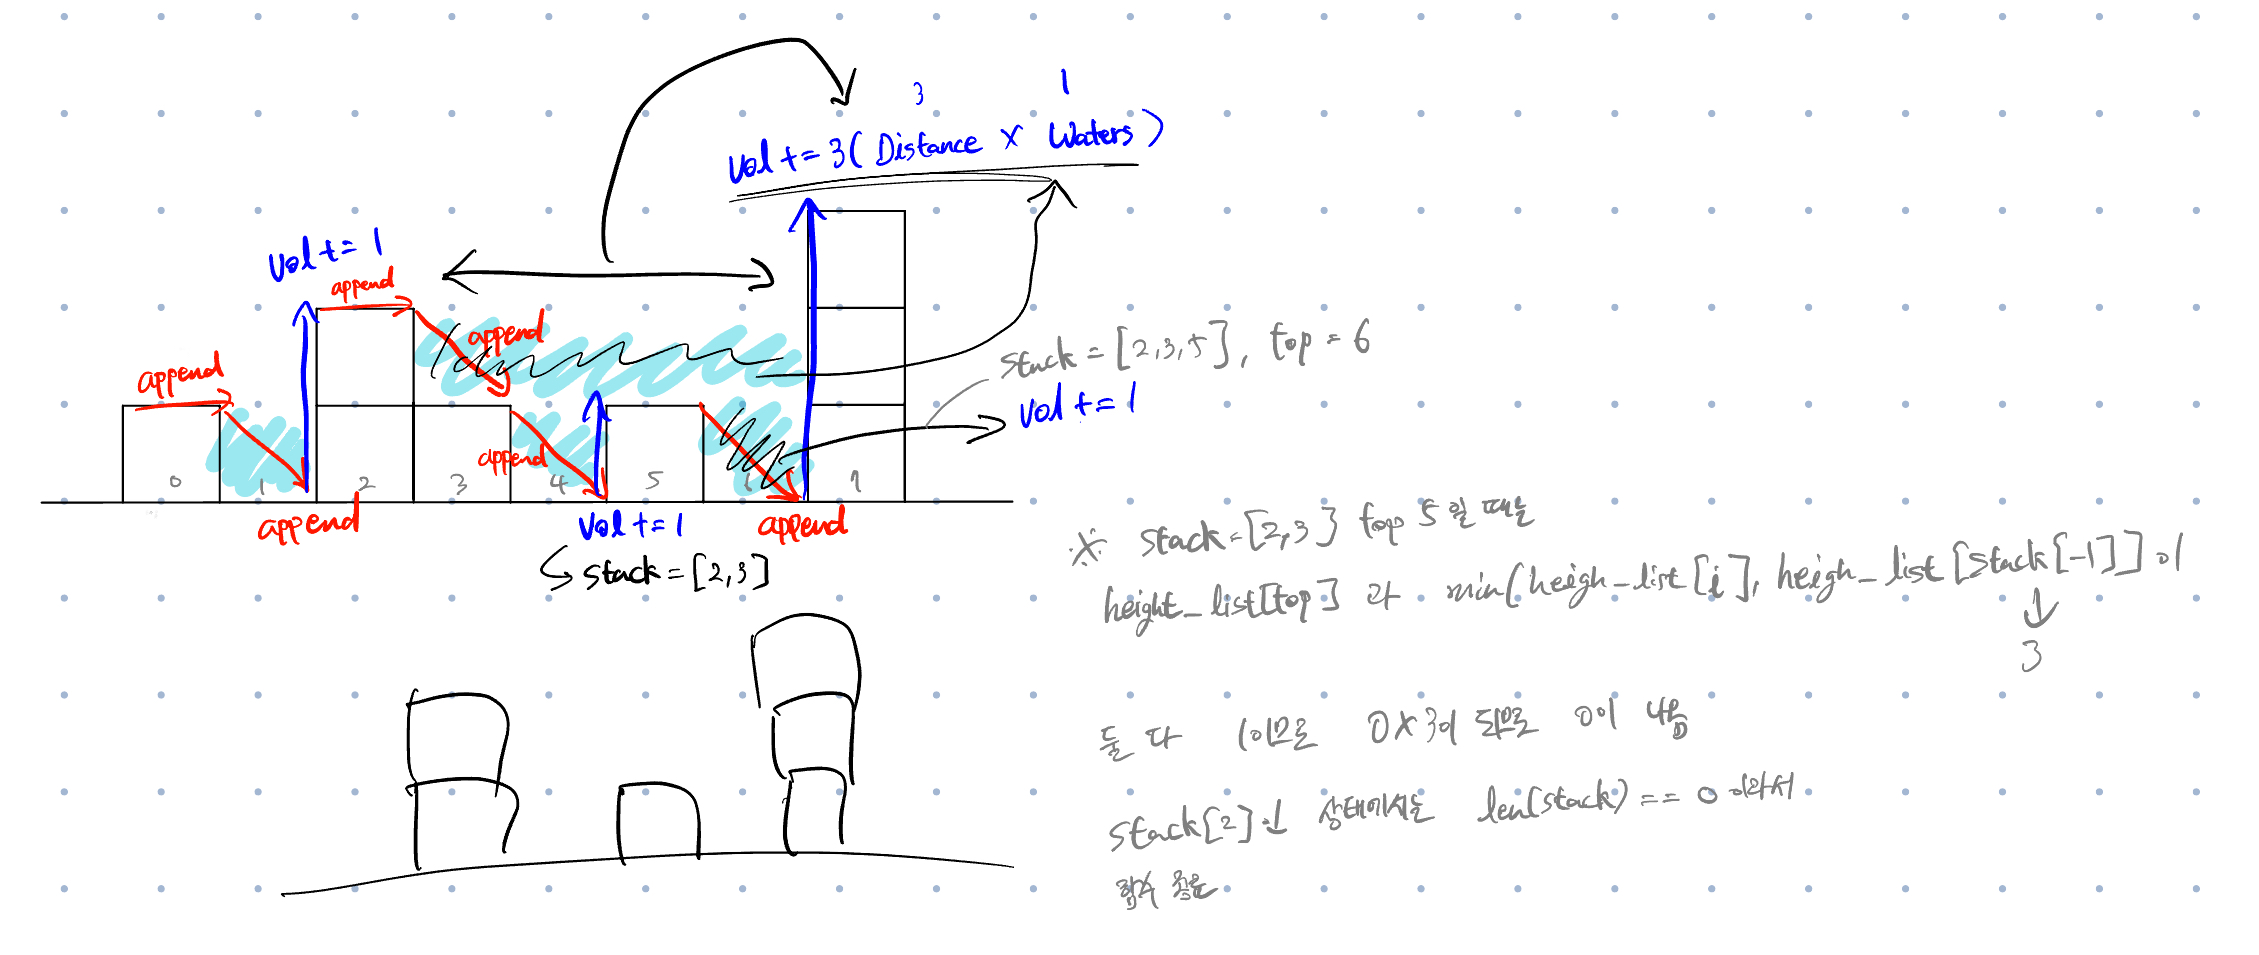 3 1
vol += 3 ( Distance x Waters )
vol += 1
append
append
append
stack = [2,3,5], top = 6
append
vol += 1
append
0 1 2 3 4 5 6 7
append
vol += 1
append
↳ stack = [2,3]
※ stack = [2,3] top 5 일 때는
height_list[top] 과 min(heigh_list[i], heigh_list[stack[-1]] 이
↓
3
둘 다 1이므로 0 x 3이 되므로 0이 나옴
stack[2]인 상태에서는 len(stack) == 0 이라서
함수